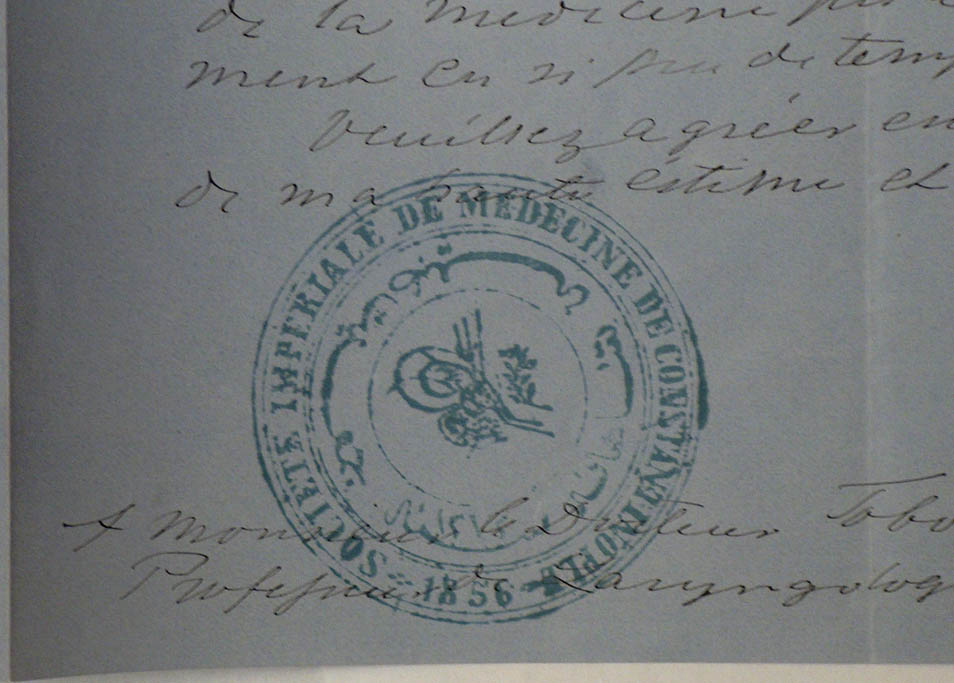 de la medecine
ment en si peu de temp
Veuillez agréer en
de ma haute éstime et
SOCIETE IMPERIALE DE MEDECINE DE CONSTANTINOPLE
1856
A Monsieur le Docteur Tobo
Professeur de Laryngolog